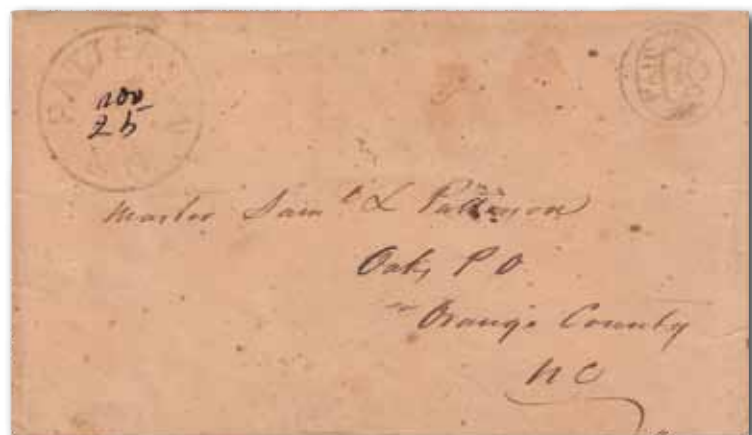 nov
25
PAID
Master Saml L Patterson
Oaks P O
Orange County
N C